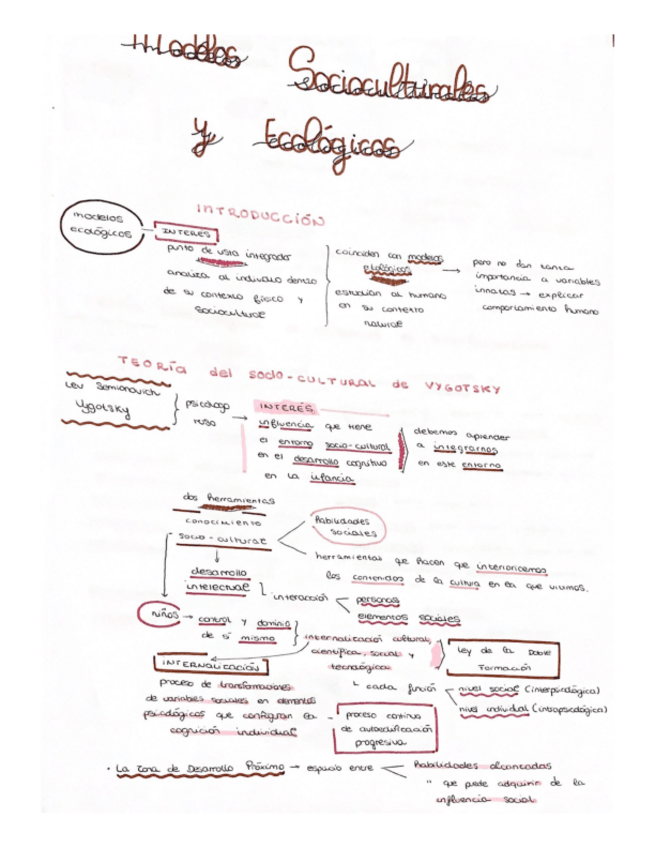 Modelos Socioculturales
y Ecológicos
INTRODUCCIÓN
modelos
ecológicos
INTERES
punto de vista integrador
analiza al individuo dentro
de su contexto físico y
sociocultural
coinciden con modelos
etológicos
estudian al humano
en su contexto
natural
pero no dan tanta
importancia a variables
innatas → explicar
comportamiento humano
TEORÍA del socio-CULTURAL de VYGOTSKY
Lev Semionovich
Vygotsky
psicólogo
ruso
INTERÉS
influencia que tiene
el entorno socio-cultural
en el desarrollo cognitivo
en la infancia
debemos aprender
a integrarnos
en este entorno
dos herramientas
conocimiento
socio-cultural
habilidades
sociales
herramientas que hacen que interioricemos
los contenidos de la cultura en la que vivimos.
desarrollo
intelectual
interacción
personas
elementos sociales
niños → control y dominio
de sí mismo
internalización cultural,
científica, social y
tecnológica
Ley de la Doble
Formación
↳ cada función
nivel social (interpsicológica)
nivel individual (intrapsicológica)
INTERNALIZACIÓN
proceso de transformaciones
de variables sociales en elementos
psicológicos que configuran la
cognición individual
proceso continuo
de autoedificación
progresiva
· La Zona de Desarrollo Próximo → espacio entre
habilidades alcanzadas
" que puede adquirir de la
influencia social